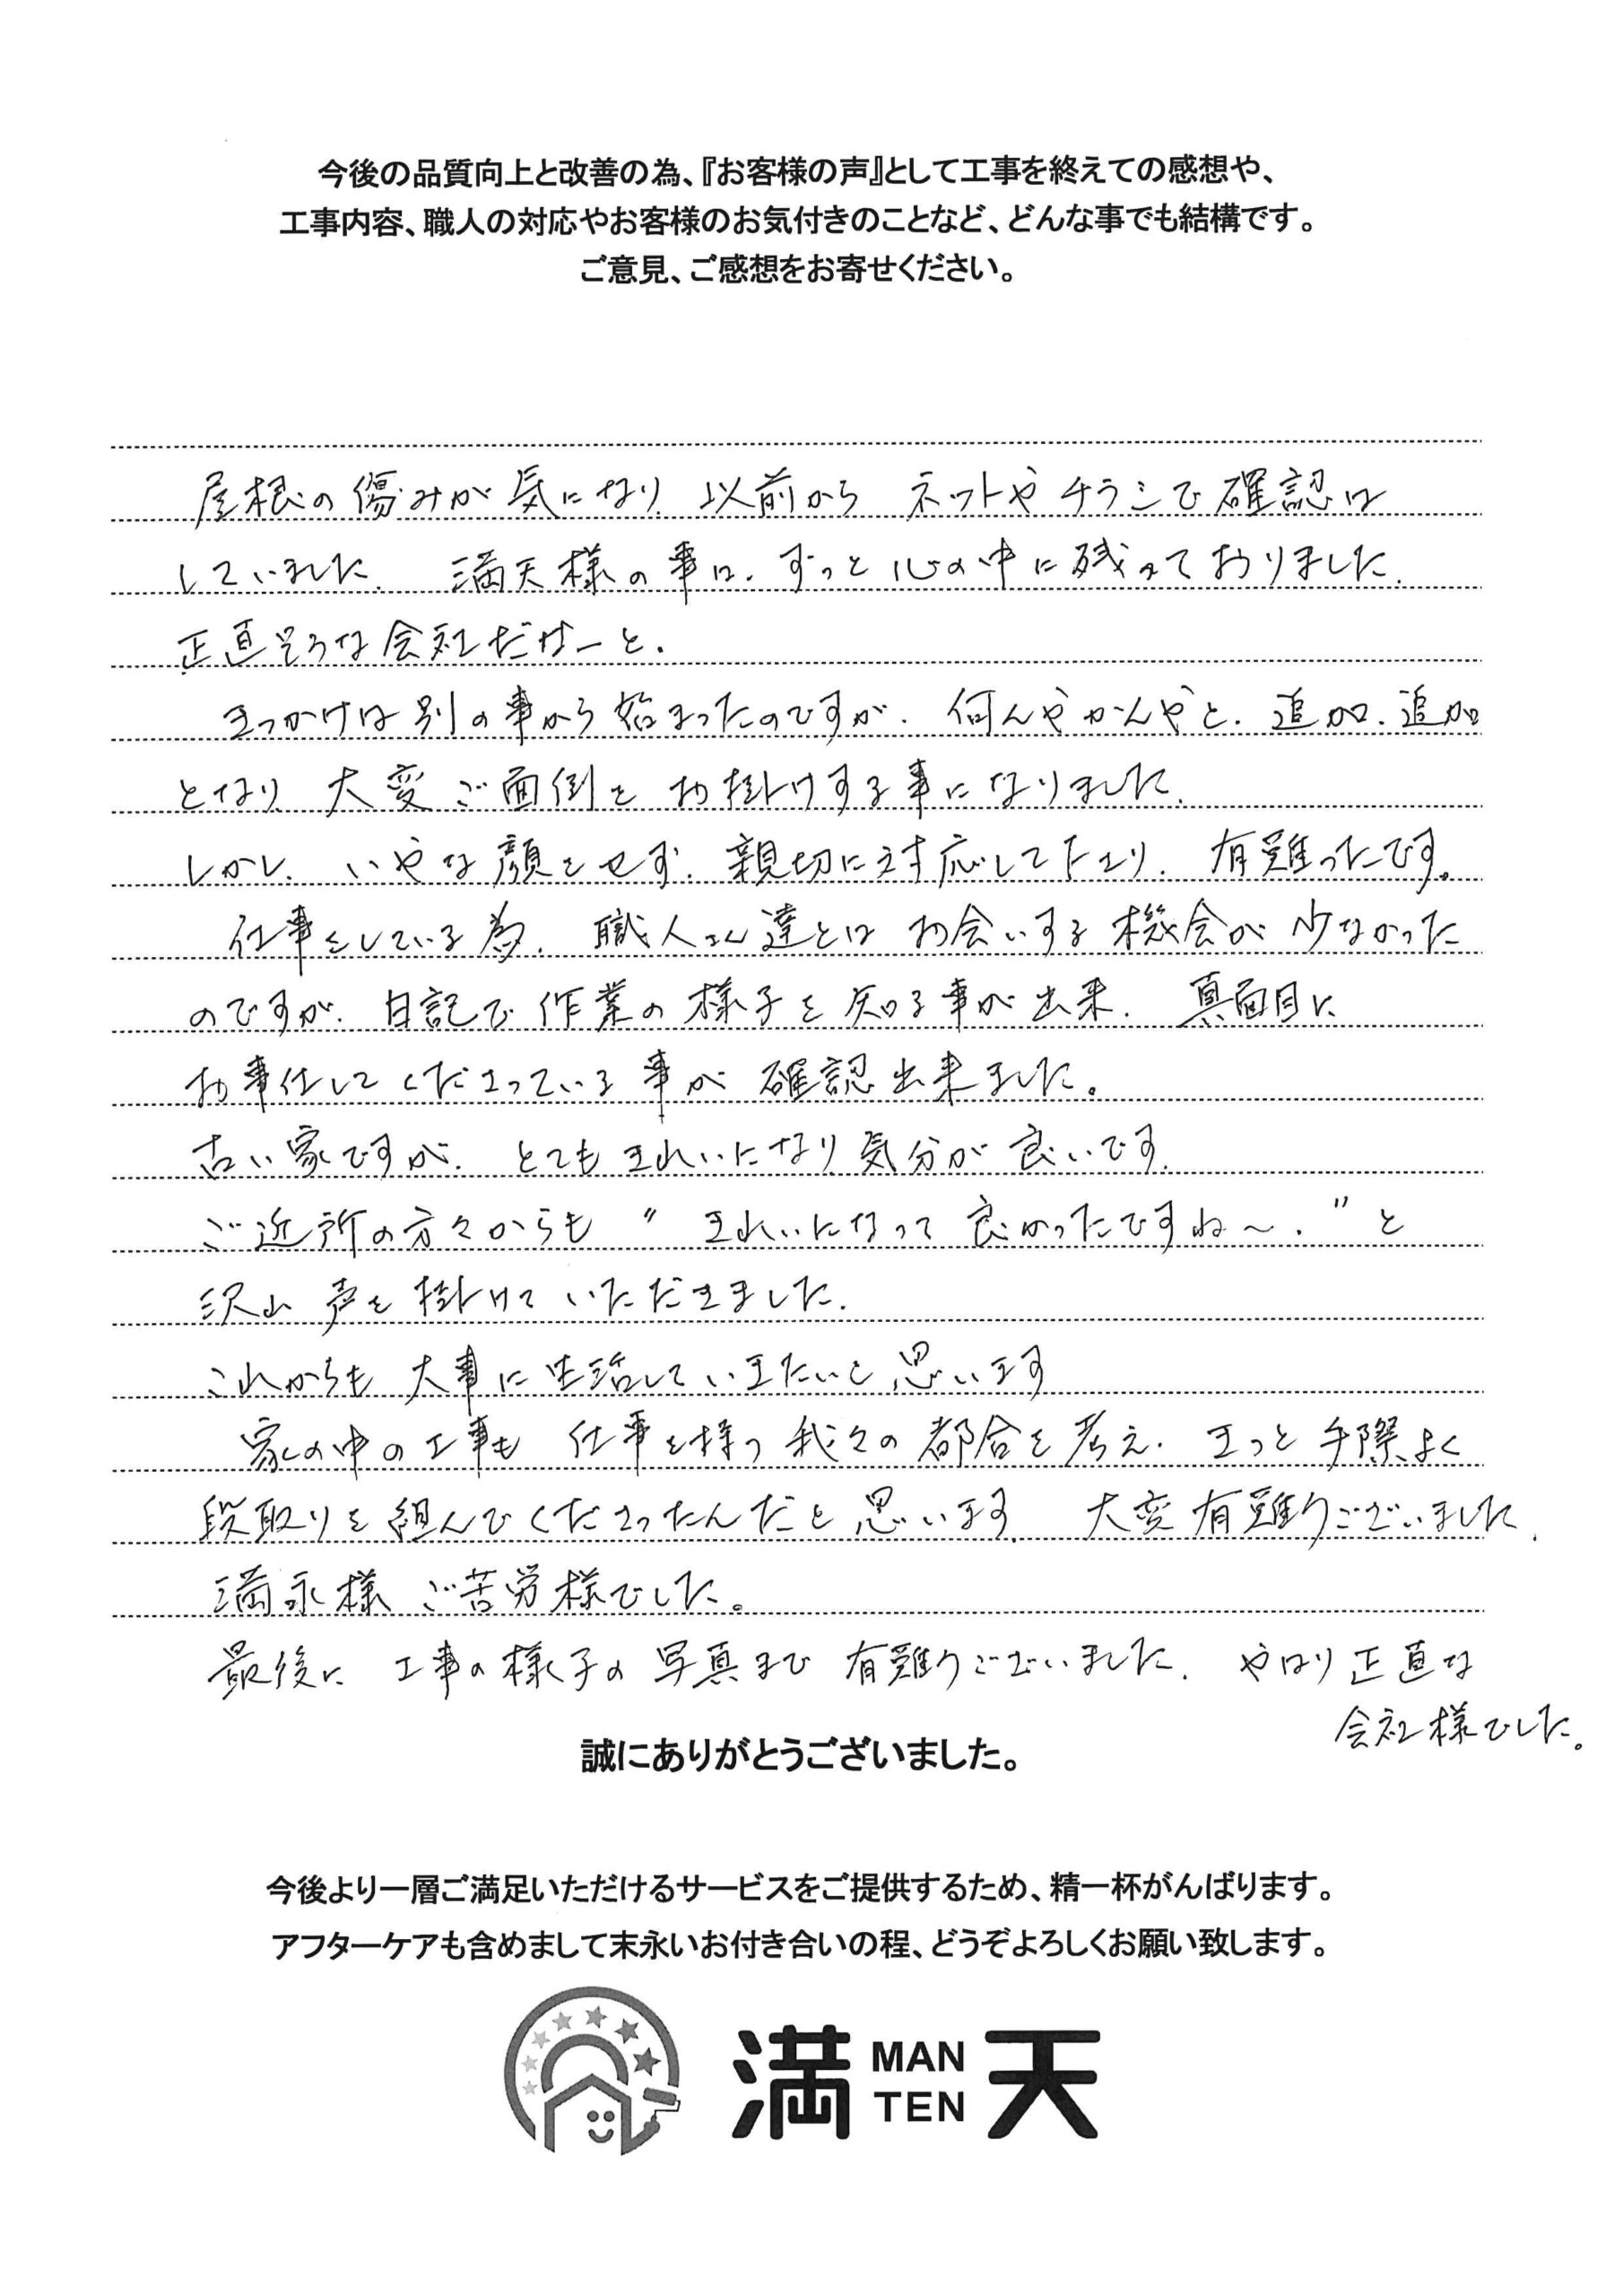 今後の品質向上と改善の為、『お客様の声』として工事を終えての感想や、
工事内容、職人の対応やお客様のお気付きのことなど、どんな事でも結構です。
ご意見、ご感想をお寄せください。
屋根の傷みが気になり、以前から ネットやチラシで確認は
していました。 満天様の事は、ずっと心の中に残っておりました。
正直そうな会社だなーと。
きっかけは別の事から始まったのですが、何んやかんやと、追加、追加
となり、大変ご面倒をお掛けする事になりました。
しかし、いやな顔をせず、親切に対応して下さり、有難ったです。
仕事をしている為、職人さん達とはお会いする機会が少なかった
のですが、日記で作業の様子を知る事が出来、真面目に
お事仕してくださっている事が確認出来ました。
古い家ですが、とてもきれいになり気分が良いです。
ご近所の方々からも〝きれいになって良かったですね〜.〞と
沢山声を掛けていただきました。
これからも大事に生活していきたいと思います
家の中の工事も 仕事を持つ我々の都合を考え、きっと手際よく
段取りを組んでくださったんだと思います。 大変有難うございました。
満永様 ご苦労様でした。
最後に 工事の様子の写真まで有難うございました。 やはり正直な
会社様でした。
誠にありがとうございました。
今後より一層ご満足いただけるサービスをご提供するため、精一杯がんばります。
アフターケアも含めまして末永いお付き合いの程、どうぞよろしくお願い致します。
満 MAN TEN 天